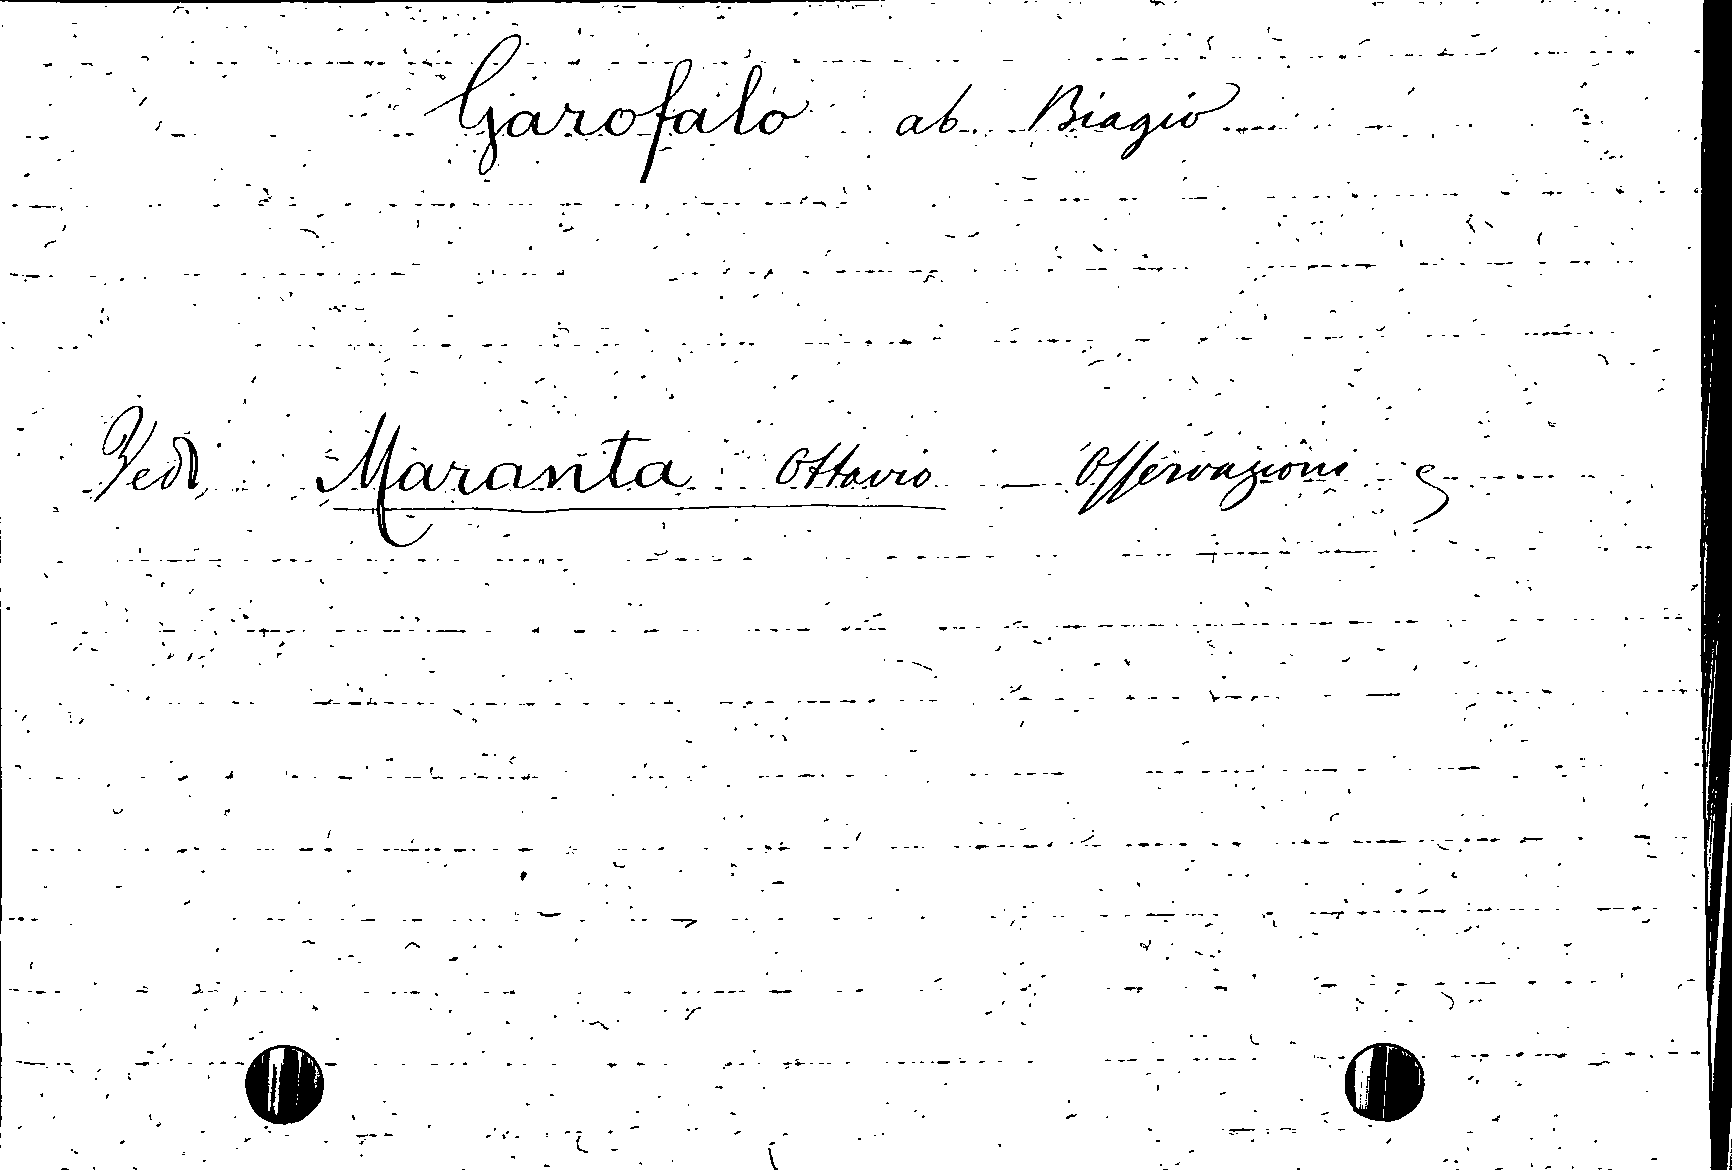 Garofalo ab. Biagio
Vedi Maranta Ottavio — Osservazioni